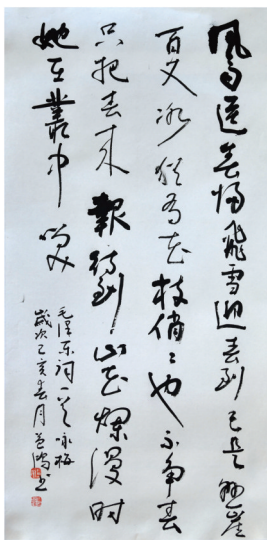 風雨送春归飛雪迎春到已是懸崖
百丈冰猶有花枝俏〻也不争春
只把春来報待到山花爛漫时
她在叢中笑
毛泽东词一首咏梅
歲次己亥春月鸿书